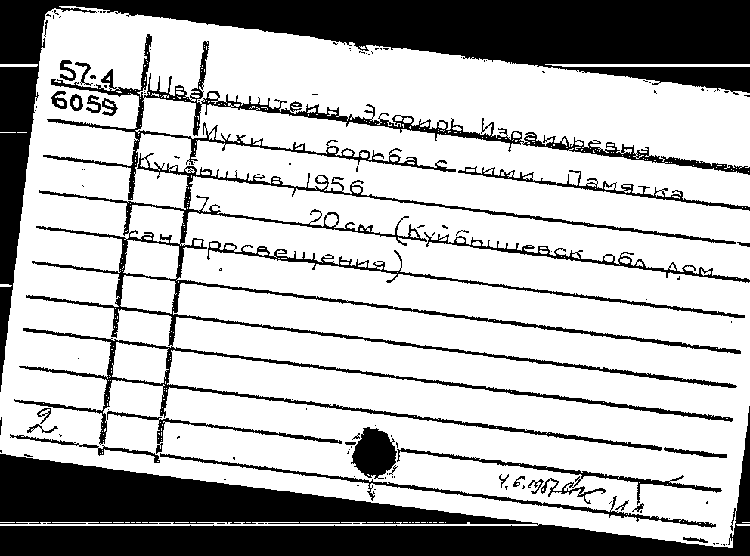 57-4
6059
Шварцштейн, Эсфирь Израильевна
Мухи и борьба с ними. Памятка
Куйбышев, 1956.
7с. 20 см. (Куйбышевск. обл. дом
сан. просвещения)
2.
4.6.1957